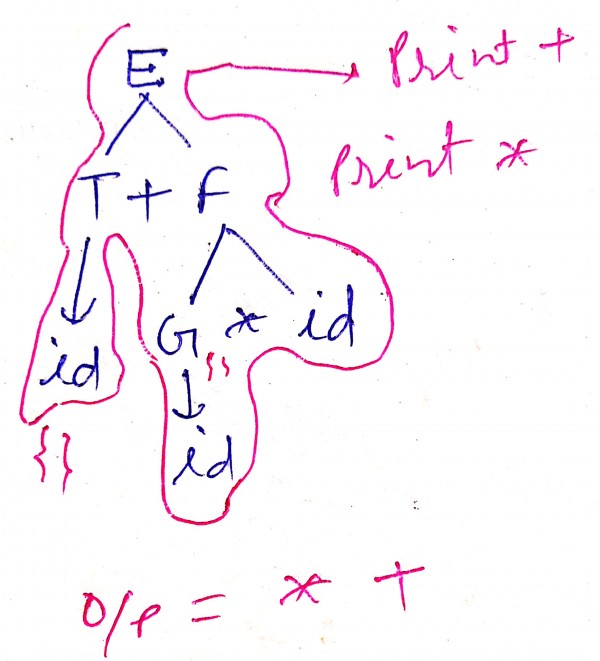 E Print +
Print *
T + F
G * id
id {}
{}
id
O/P = * +